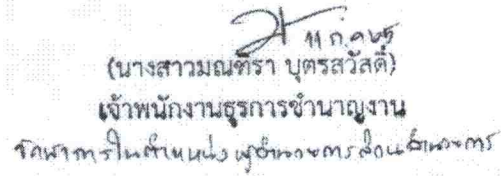 11 ก.ค. 65
(นางสาวมณฑิรา บุตรสวัสดิ์)
เจ้าพนักงานธุรการชำนาญงาน
รักษาการในตำแหน่ง ผู้อำนวยการส่วนอำนวยการ